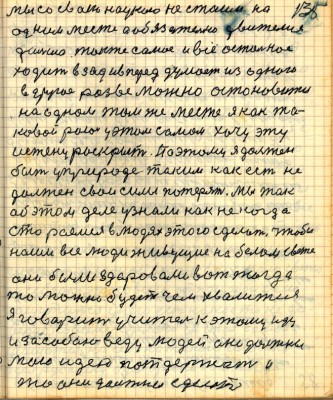 135
мы со своей наукою не стаим на
одним месте а обязателно двигаемся
дално тожте самое и всё осталное
ходит взад и вперед думает из одного
в другое розве можно остоновитя
на одном том же месте я как та-
ковой роскрыт самом хочу эту
истену роскрыт. Поэтому я должен
быт у природе таким как ест не
должен свои силы потерят. Мы так
аб этом деле узнали как не когда
стораемся в людях этого сделат, чтобы
наши все люди живущие на белом свете
они были здаровами вот тогда
то можно будет чем хвалится
я говарит учител к этому иду
и за собою веду людей они должны
мою идею поддержат и
то они должны сделат